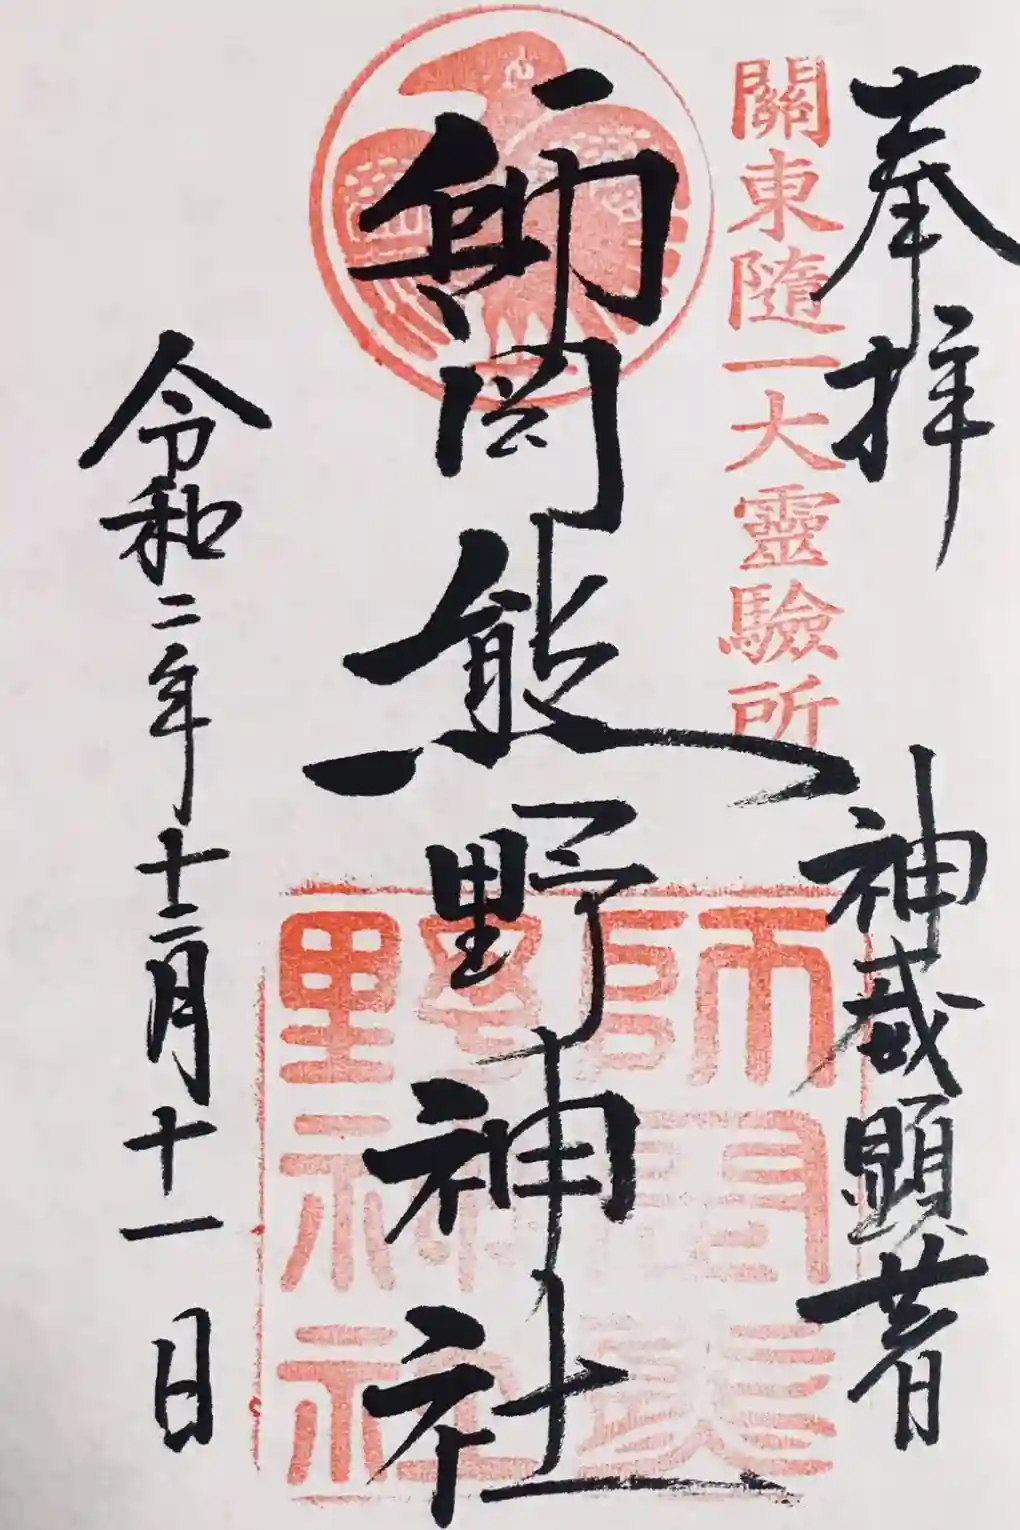 奉拝
神威顕著
關東隨一大靈驗所
師岡熊野神社
師岡熊
野神社
令和二年十二月十一日